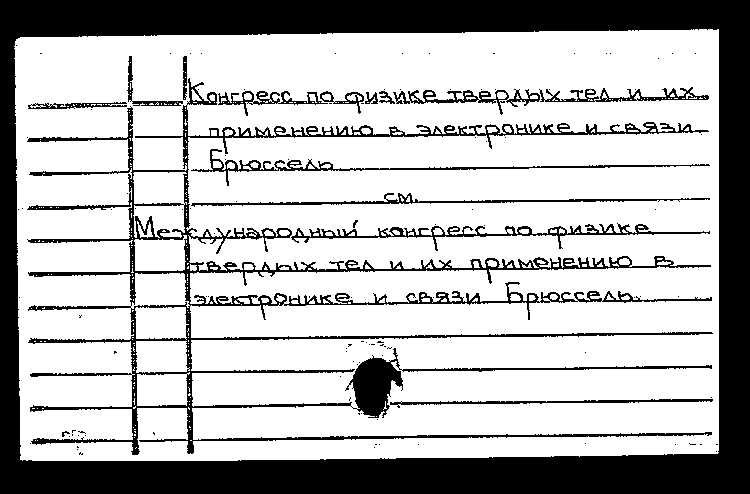 Конгресс по физике твердых тел и их
применению в электронике и связи
Брюссель
см.
Международный конгресс по физике
твердых тел и их применению в
электронике и связи. Брюссель.